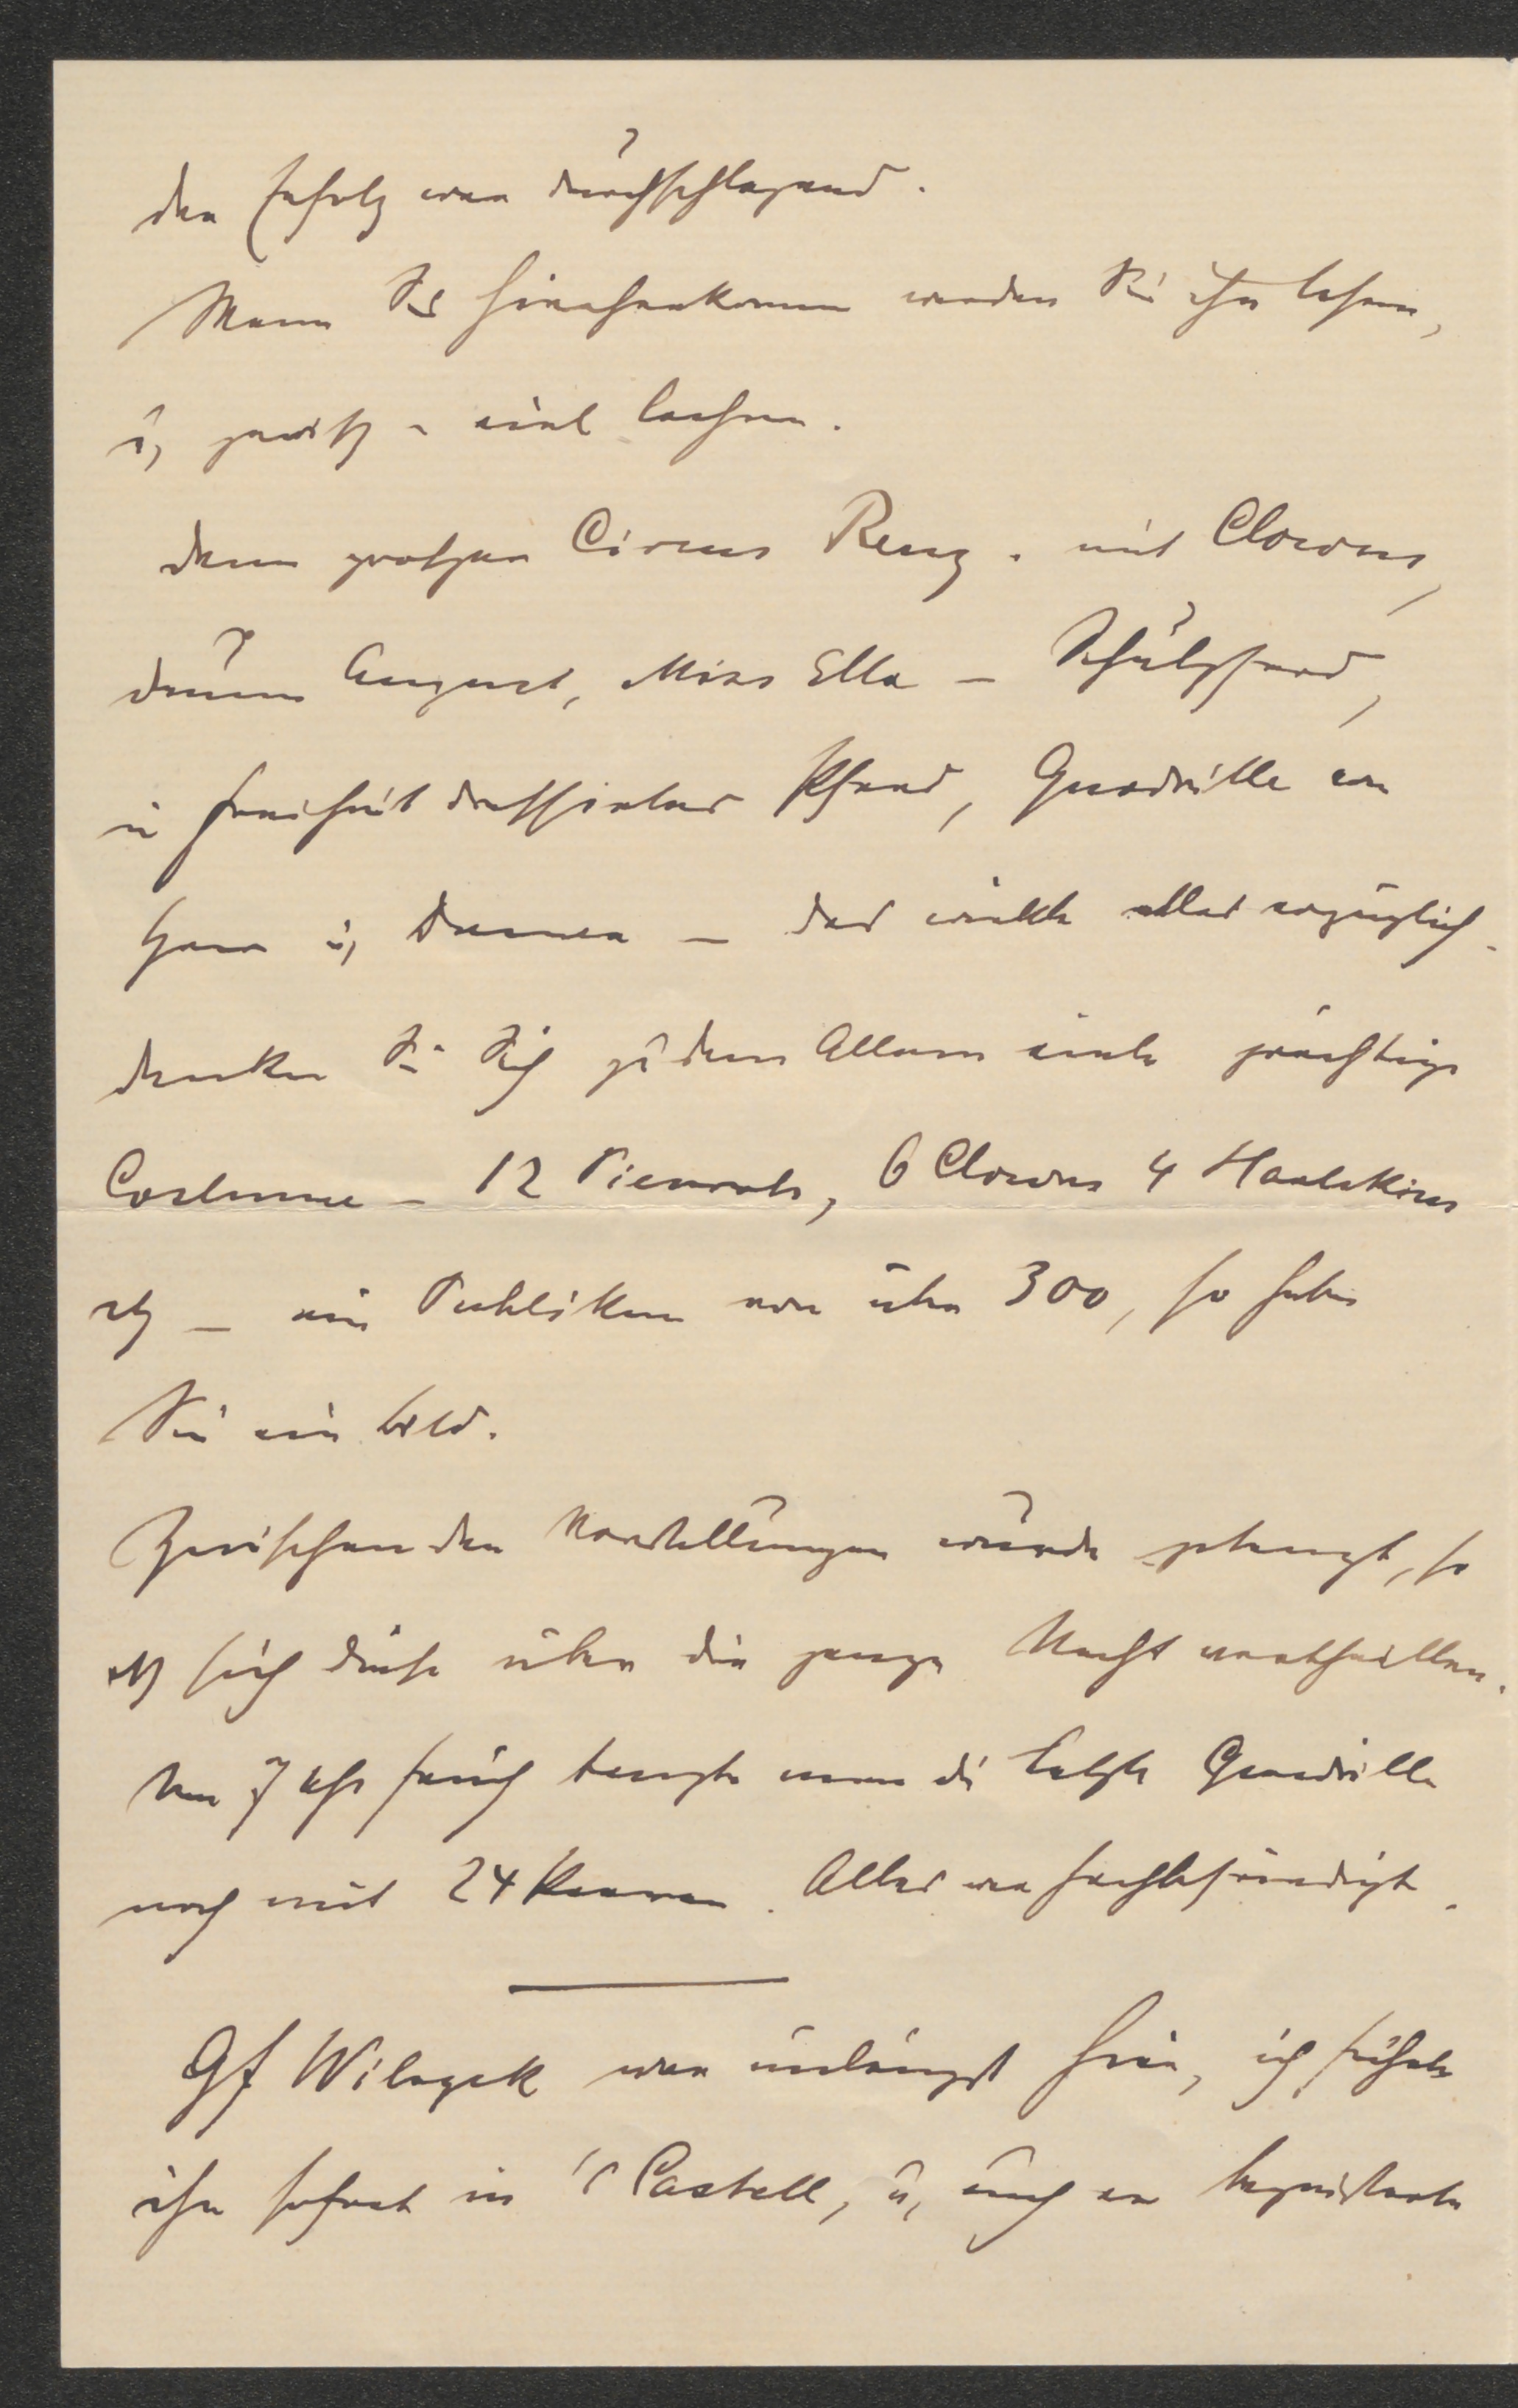 der Erfolg war durchschlagend.
Wenn Sie hieherkommen werden Sie ihn lesen,
u, gewiß - viel lachen.
dem großen Circus Renz. mit Clowns,
dummen August, Miss Ella - Schulpferd,
in Freiheit dressirtes Pferd, Quadrille von
Herrn u, Damen - das wirkte alles vorzüglich.
denken Sie Sich zu dem Allem viele prächtige
Costume - 12 Pierrots, 6 Clowns 4 Harlekins
etz - ein Publikum von über 300, so haben
Sie ein Bild.
Zwischen den Vorstellungen wurde getanzt, so
sich diese über die ganze Nacht vertheilten.
Um 7 Uhr früh tanzte man die letzte Quadrille
noch mit 24 Paaren. Alles war hochbefriedigt.
Gf Wilczek war unlängst hier, ich führte
ihn sofort in 's Castell, u, auch er begeisterte